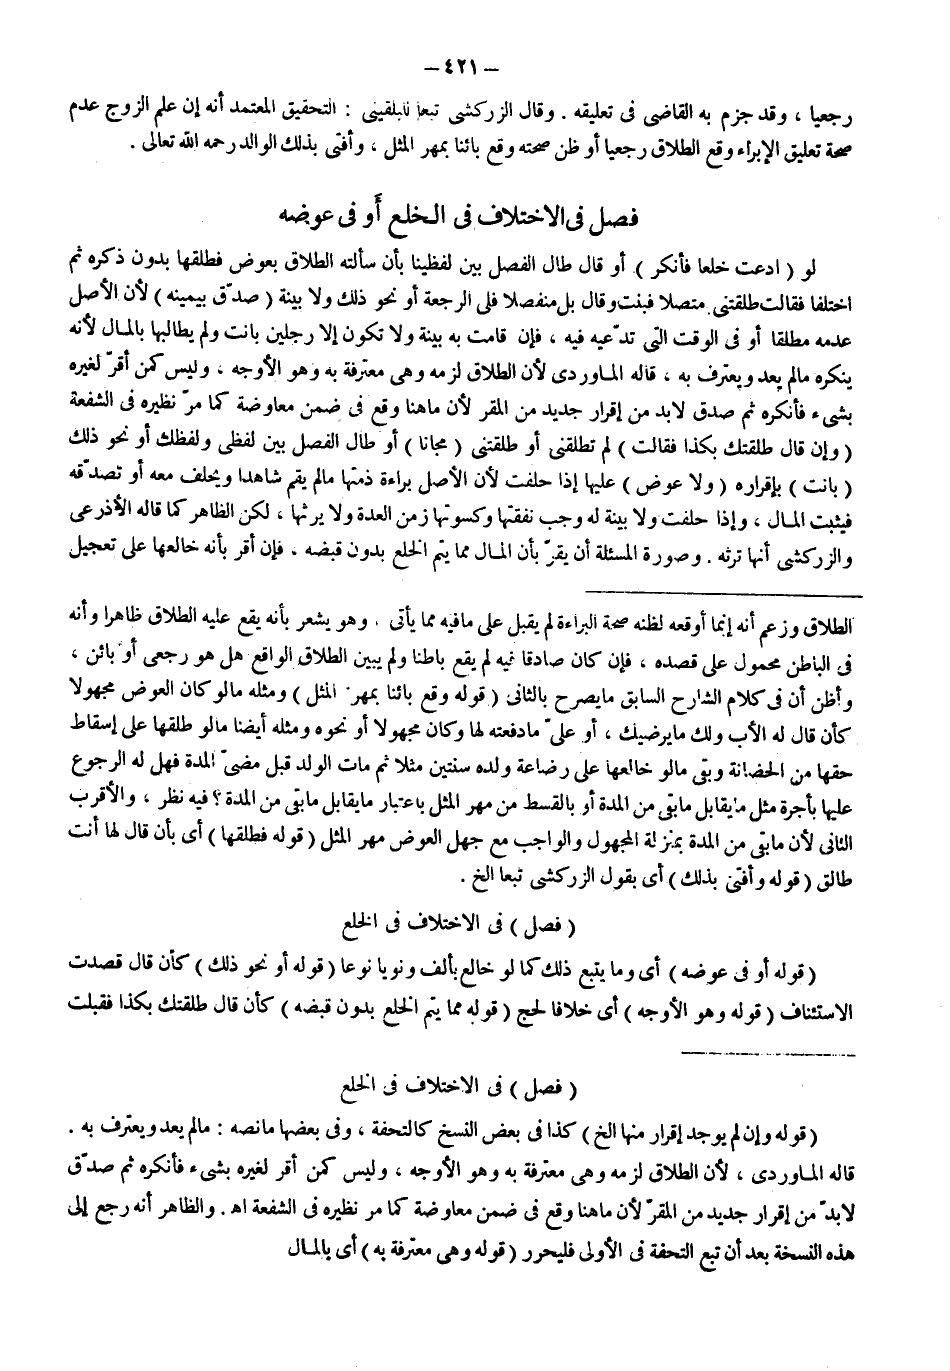 – ٤٢١ –
رجعيا ، وقد جزم به القاضى فى تعليقه . وقال الزركشى تبعا للبلقينى : التحقيق المعتمد أنه إن علم الزوج عدم
صحة تعليق الإبراء وقع الطلاق رجعيا أو ظن صحته وقع بائنا بمهر المثل ، وأفتى بذلك الوالد رحمه الله تعالى .
فصل فى الاختلاف فى الخلع أَو فى عوضه
لو ( ادعت خلعا فأنكر ) أو قال طال الفصل بين لفظينا بأن سألته الطلاق بعوض فطلقها بدون ذكره ثم
اختلفا فقالت طلقتنى متصلا فبنت وقال بل منفصلا فلى الرجعة أو نحو ذلك ولا بينة ( صدّق بيمينه ) لأن الأصل
عدمه مطلقا أو فى الوقت التى تدّعيه فيه ، فإن قامت به بينة ولا تكون إلا رجلين بانت ولم يطالبها بالمال لأنه
ينكره مالم يعد ويعترف به ، قاله الماوردى لأن الطلاق لزمه وهى معترفة به وهو الأوجه ، وليس كمن أقرّ لغيره
بشىء فأنكره ثم صدق لابد من إقرار جديد من المقر لأن ماهنا وقع فى ضمن معاوضة كما مرّ نظيره فى الشفعة
( وإن قال طلقتك بكذا فقالت ) لم تطلقنى أو طلقتنى ( مجانا ) أو طال الفصل بين لفظى ولفظك أو نحو ذلك
( بانت ) بإقراره ( ولا عوض ) عليها إذا حلفت لأن الأصل براءة ذمتها مالم يقم شاهدا ويحلف معه أو تصدّقه
فيثبت المال ، وإذا حلفت ولا بينة له وجب نفقتها وكسوتها زمن العدة ولا يرثها ، لكن الظاهر كما قاله الأذرعى
والزركشى أنها ترثه . وصورة المسئلة أن يقرّ بأن المال مما يتم الخلع بدون قبضه ، فإن أقر بأنه خالعها على تعجيل
الطلاق وزعم أنه إنما أوقعه لظنه صحة البراءة لم يقبل على مافيه مما يأتى . وهو يشعر بأنه يقع عليه الطلاق ظاهرا وأنه
فى الباطن محمول على قصده ، فإن كان صادقا فيه لم يقع باطنا ولم يبين الطلاق الواقع هل هو رجعى أو بائن ،
وأظن أن فى كلام الشارح السابق مايصرح بالثانى ( قوله وقع بائنا بمهر المثل ) ومثله مالو كان العوض مجهولا
كأن قال له الأب ولك مايرضيك ، أو علىّ مادفعته لها وكان مجهولا أو نحوه ومثله أيضا مالو طلقها على إسقاط
حقها من الحضانة وبقى مالو خالعها على رضاعة ولده سنتين مثلا ثم مات الولد قبل مضىّ المدة فهل له الرجوع
عليها بأجرة مثل مايقابل مابقى من المدة أو بالقسط من مهر المثل باعتبار مايقابل مابقى من المدة ؟ فيه نظر ، والأقرب
الثانى لأن مابقى من المدة بمنزلة المجهول والواجب مع جهل العوض مهر المثل ( قوله فطلقها ) أى بأن قال لها أنت
طالق ( قوله وأفتى بذلك ) أى بقول الزركشى تبعا الخ .
( فصل ) فى الاختلاف فى الخلع
( قوله أو فى عوضه ) أى وما يتبع ذلك كما لو خالع بألف ونويا نوعا ( قوله أو نحو ذلك ) كأن قال قصدت
الاستئناف ( قوله وهو الأوجه ) أى خلافا لحج ( قوله مما يتم الخلع بدون قبضه ) كأن قال طلقتك بكذا فقبلت
( فصل ) فى الاختلاف فى الخلع
( قوله وإن لم يوجد إقرار منها الخ ) كذا فى بعض النسخ كالتحفة ، وفى بعضها مانصه : مالم يعد ويعترف به .
قاله الماوردى ، لأن الطلاق لزمه وهى معترفة به وهو الأوجه ، وليس كمن أقر لغيره بشىء فأنكره ثم صدّق
لابدّ من إقرار جديد من المقرّ لأن ماهنا وقع فى ضمن معاوضة كما مر نظيره فى الشفعة اه . والظاهر أنه رجع إلى
هذه النسخة بعد أن تبع التحفة فى الأولى فليحرر ( قوله وهى معترفة به ) أى بالمال